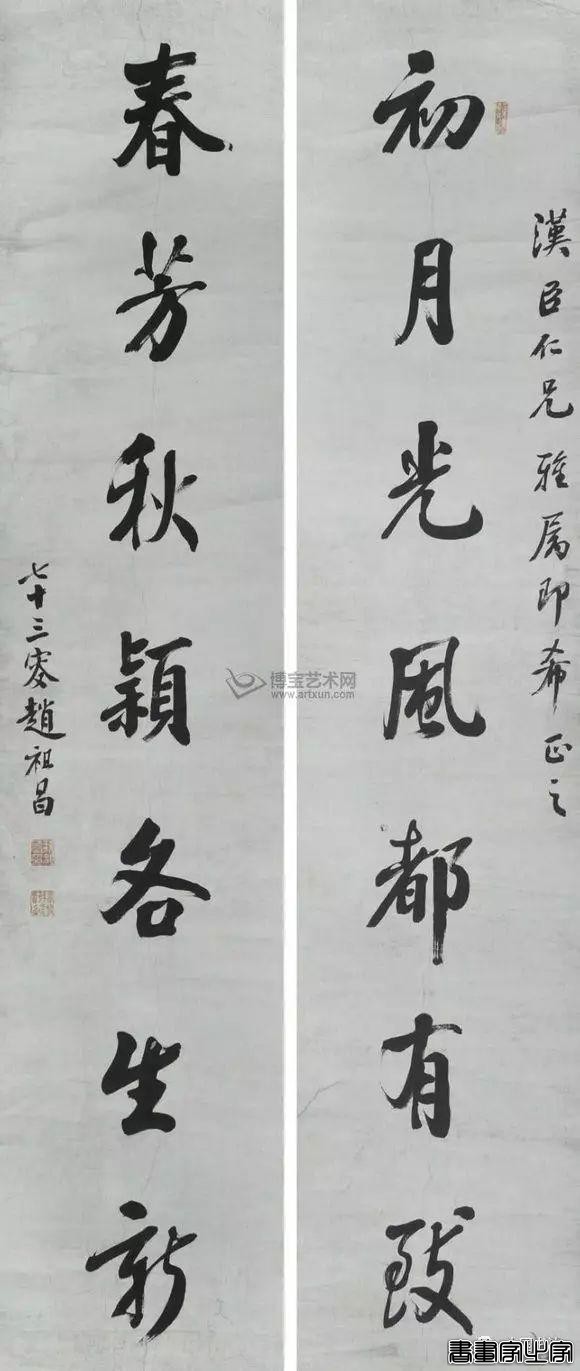 漢臣仁兄雅属即希正之
初月光風都有致
春芳秋穎各生新
七十三叟趙祖昌
博宝艺术网
www.artxun.com
書畫家止家